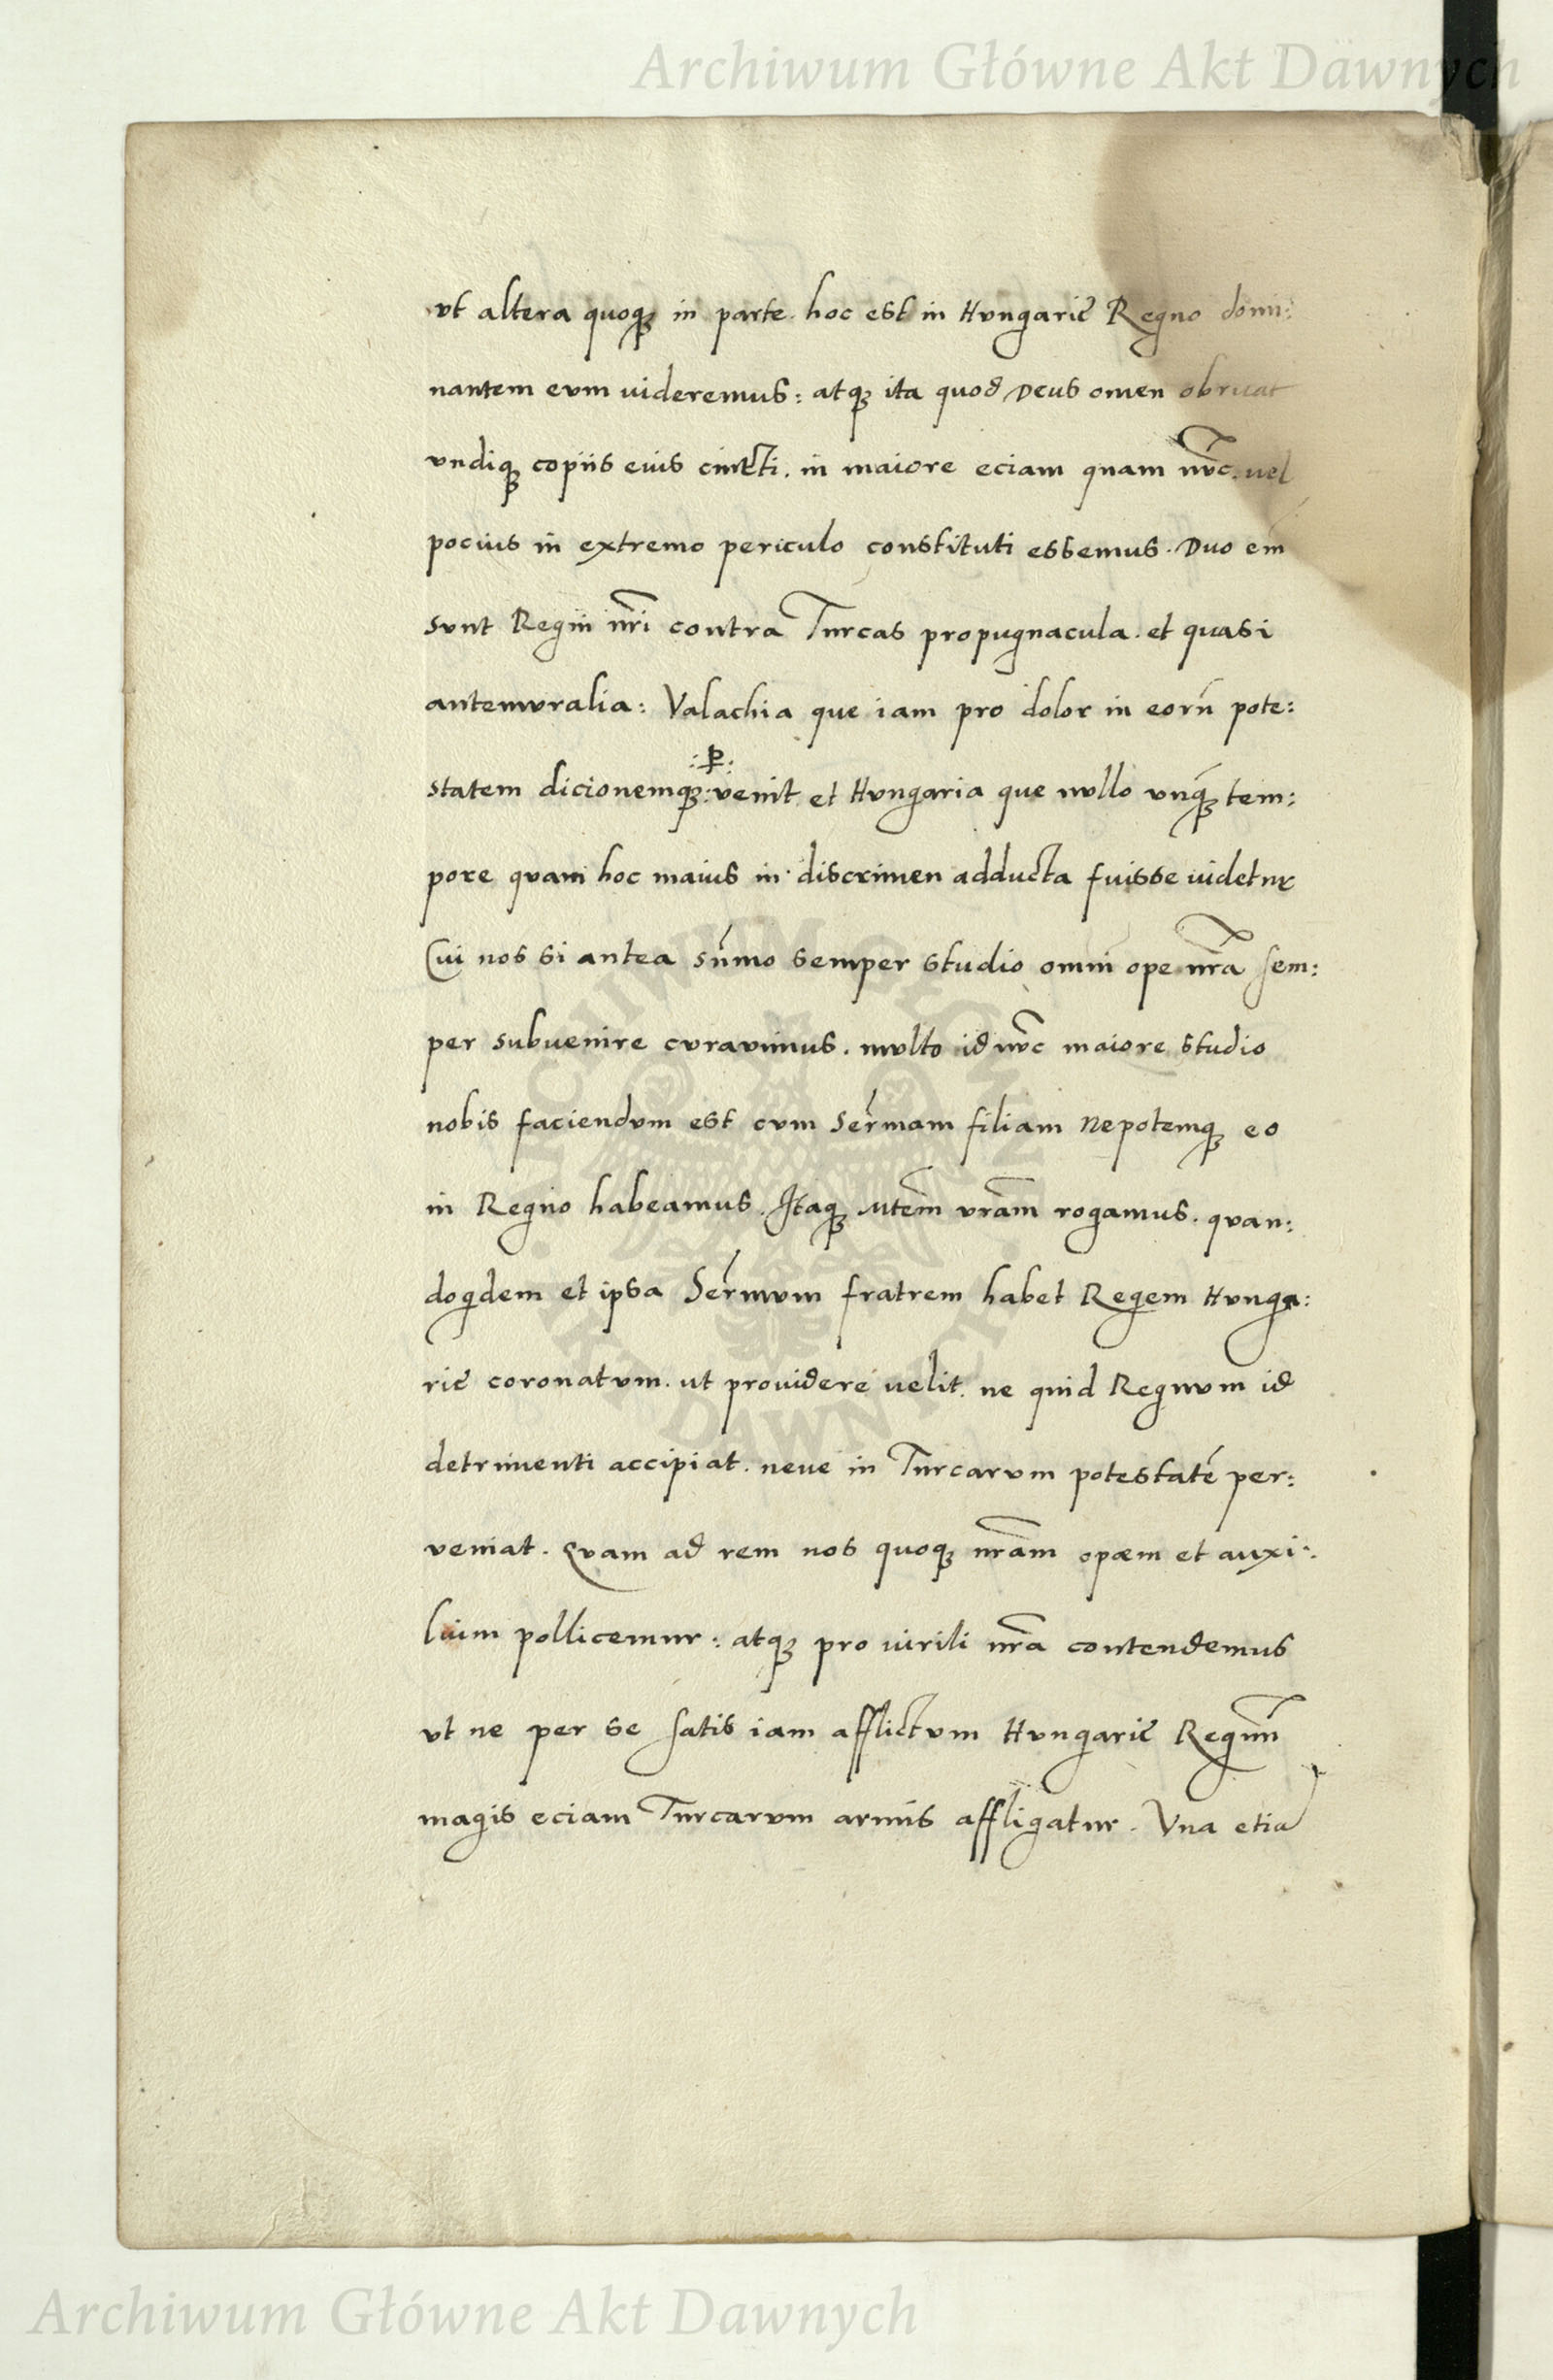 Archiwum Główne Akt Dawnych
vt altera quoq; in parte. hoc est in Hvngarię Regno domi:
nantem evm uideremus: atq; ita quod Deus omen obruat
vndiq; copiis eius cinctti. in maiore eciam quam nūc. uel
pocius in extremo periculo constituti essemus. Duo em̄
svnt Regni nr̄i contra Turcas propugnacula. et quasi
antemvralia: Valachia que iam pro dolor in eorū pote:
:ꝑ:
statem dicionemq;:venit et Hvngaria que nvllo vnq̄; tem:
pore qvam hoc maius in discrimen adducta fuisse uidetur
Cui nos si antea sūmo semper studio omni ope nr̄a sem:
per subuenire cvravimus. mvlto id nūc maiore studio
nobis faciendvm est cvm Ser̄mam filiam Nepotemq; eo
in Regno habeamus. Itaq; Mtem̄ vrām rogamus. qvan:
doqdem et ipsa Ser̄mvm fratrem habet Regem Hvnga:
rię coronatvm. ut providere uelit. ne quid Regnvm id
detrimenti accipiat. neue in Turcarvm potestatē per:
veniat. Qvam ad rem nos quoq; nrām opæm et auxi:
lium pollicemur: atq; pro uirili nr̄a contendemus
vt ne per se satis iam afflictvm Hvngarię Regnum̄
magis eciam Turcarvm armis affligatur. Vna etiā
Archiwum Główne Akt Dawnych